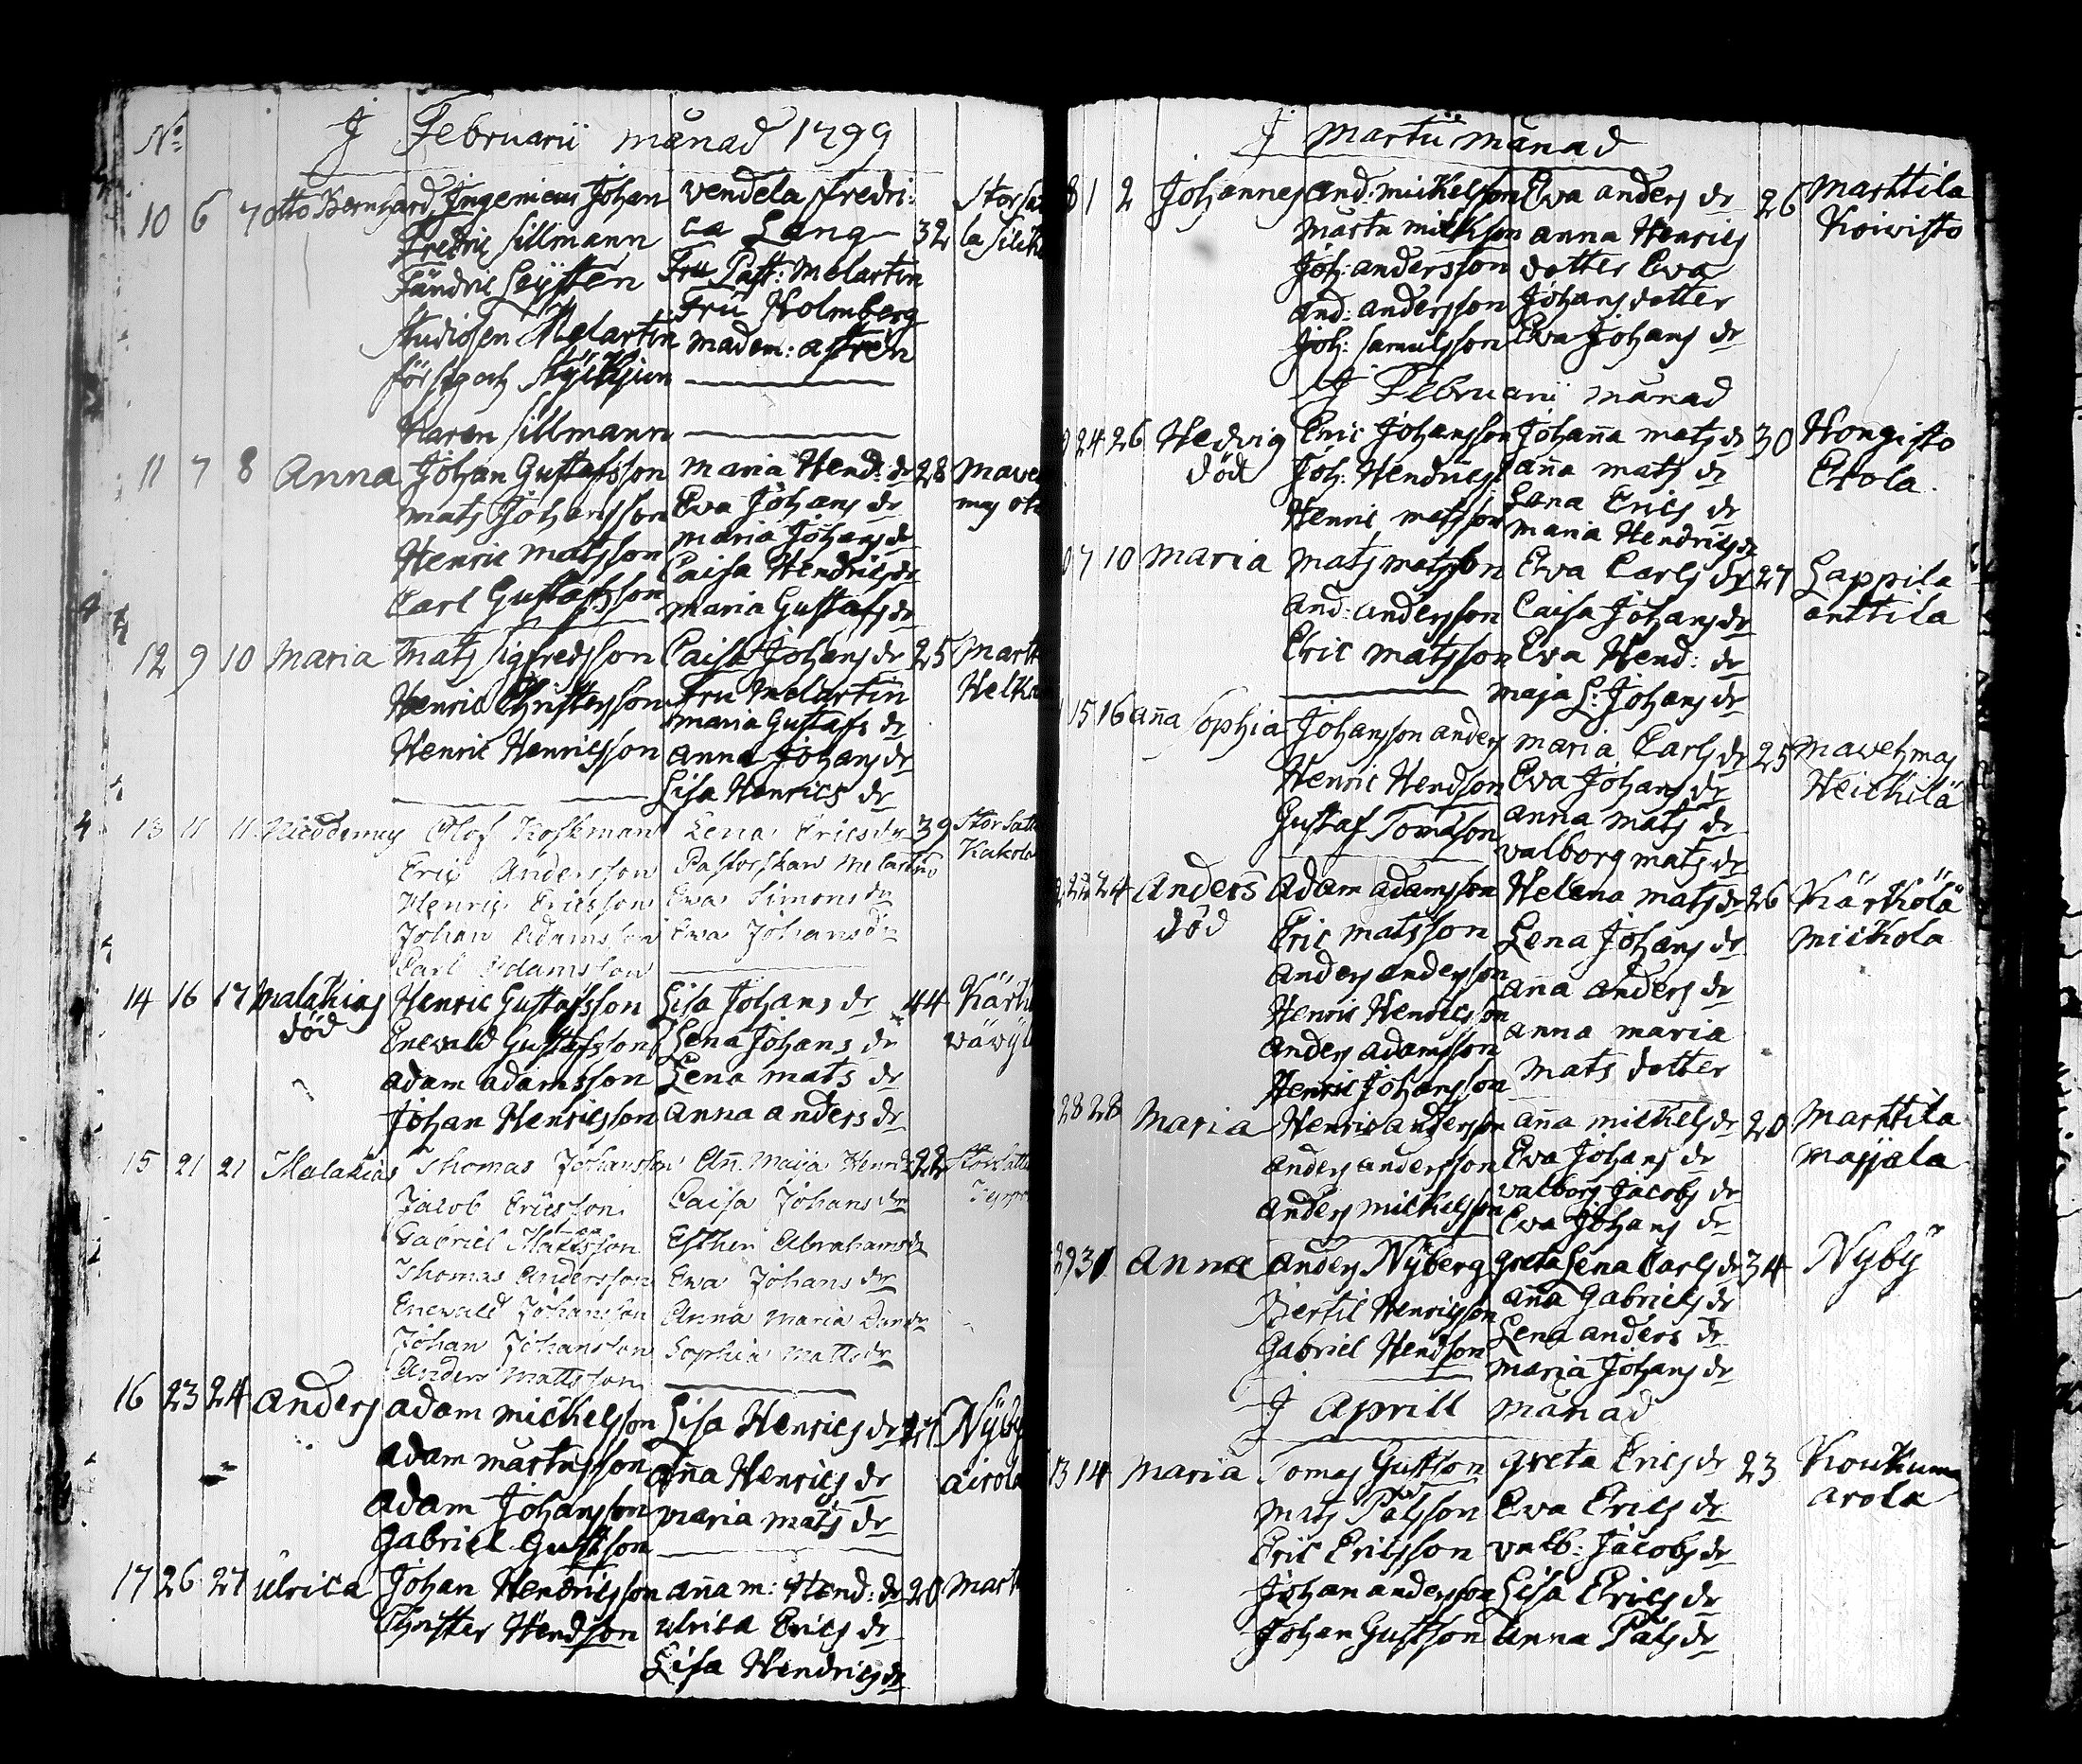 No I Februarii månad 1799
10 6 7 Otto Bernhard Ingenieur Johan Vendela Fredri: 32 Storsat
Fredric Sillmann ca Lang la
Fändric Leijsten Fru Past: Melartin
Studiosen Melartin Fru Holmberg
Madem: Astrén
Haren Sillmann
11 7 8 Anna Johan Gustafsson Maria Hend: dr 28
Mats Johansson Eva Johans dr
Henric Matsson Maria Johans dr
Carl Gustafsson Caisa Hendrics dr
Maria Gustafs dr
12 9 10 Maria Mats Sigfredsson Caisa Johans dr 25 Martt
Henric Christersson Fru Melartin
Henric Henricsson Maria Gustafs dr
Anna Johans dr
Lisa Henrics dr
13 11 11 Nicodemus Olof Koskman Lena Erics dr 39 Storsatt
Eric Andersson Pastorskan Melartin Kakola
Henric Ericsson Ewa Simons dr
Johan Adamsson Ewa Johans dr
Carl Adamsson
14 16 17 Malakias Henric Gustafsson Lisa Johans dr 44 Kärk
död Enevald Gustafsson Lena Johans dr
Adam Adamsson Lena Mats dr
Johan Henricsson Anna Anders dr
15 21 21 Malakias Thomas Johansson Ann. Maija Henr 22 Storsatt
Jacob Ericsson Caisa Johans dr
Gabriel Mattsson Esther Abrahams dr
Thomas Andersson Ewa Johans dr
Enewald Johansson Anna Maria
Johan Johansson Sophia Matts dr
Anders Mattsson
16 23 24 Anders Adam Michelsson Lisa Henrics dr Nyby
Adam Mårtensson Anna Henrics dr Airola
Adam Johansson Maria Mats dr
Gabriel Gustson
17 26 27 Ulrica Johan Hendricsson Anna M: Hend: dr 20 Mart
Christer Hendson Ulrica Erics dr
Lisa Hendrics dr
I Martii månad
8 1 2 Johannes And: Mickelson Eva Anders dr 26 Marttila
Anna Henrics Koivisto
Joh: Andersson dotter Eva
And: Andersson Johans dotter
Joh: Samulsson Eva Johans dr
I Februarii månad
24 26 Hedvig Eric Johansson Johanna Mats dr 30 Hongisto
död Joh: Anna Mats dr Erola
Henric Matsson Lena Erics dr
Maria Hendrics dr
0 7 10 Maria Mats Matsson Eva Carls dr 27 Lappila
And: Andersson Caisa Johans dr Anttila
Eric Matsson Eva Hend: dr
Maja L: Johans dr
15 16 Anna Sophia Johansson Anders Maria Carls dr 25 Mavehmaj
Henric Hendson Eva Johans dr Heickilä
Gustaf Tomason Anna Mats dr
Valborg Mats dr
24 Anders Adam Adamsson Helena Mats dr 26 Kärkölä
död Eric Matsson Lena Johans dr Mickola
Anders Andersson Anna Anders dr
Henric Henricsson Anna Maria
Anders Adamsson Mats dotter
Henric Johansson
28 28 Maria Henric Andersson Anna Michels dr 20 Marttila
Anders Andersson Eva Johans dr Majjala
Anders Mickelsson Valborg Jacobs dr
Eva Johans dr
29 31 Anna Anders Nyberg Greta Lena Carls dr 34 Nyby
Bertil Henricsson Anna Gabriels dr
Gabriel Hendson Lena Anders dr
Maria Johans dr
I Aprill månad
13 14 Maria Tomas Gustson Greta Erics dr 23 Koukunma
Mats Pålsson Eva Erics dr Arola
Eric Ericsson Valb: Jacobs dr
Johan Andersson Lisa Erics dr
Johan Gustson Anna Påls dr